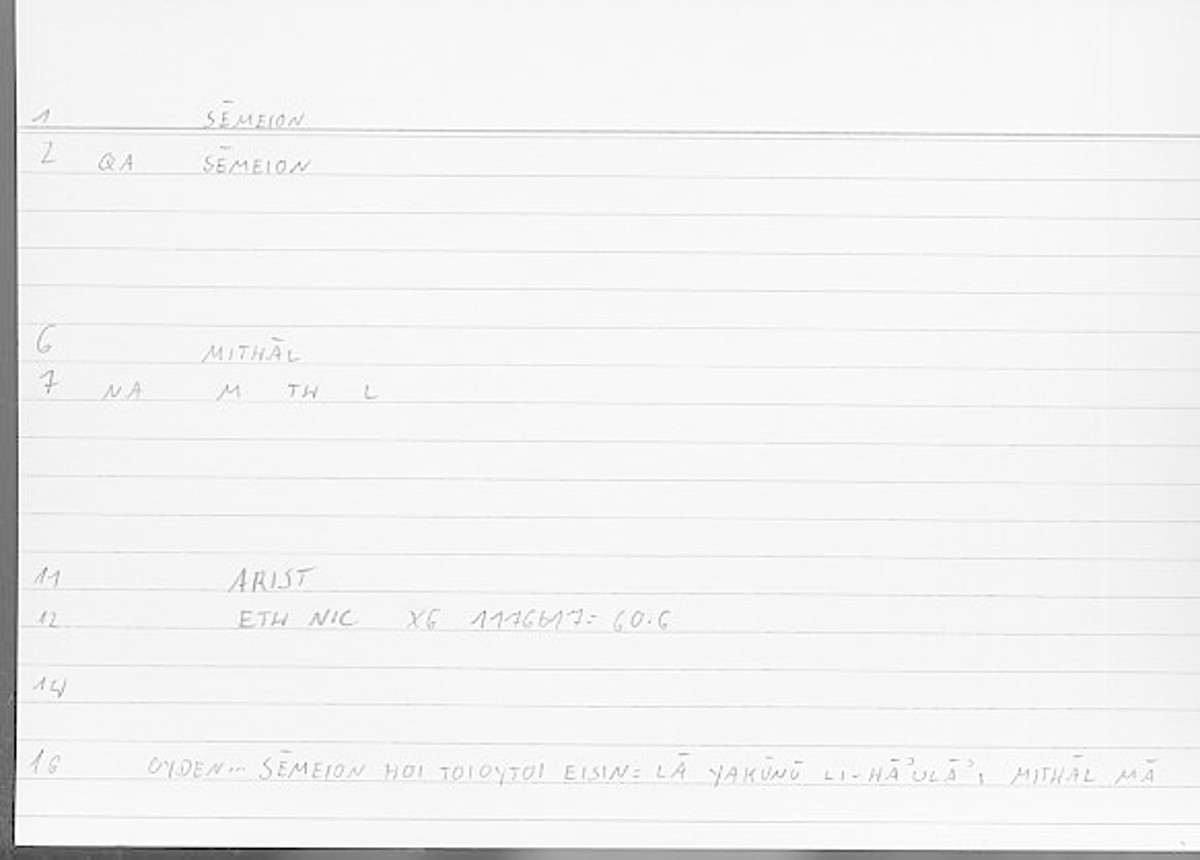 1 SĒMEION
2 QA SĒMEION
6 MITHĀL
7 NA M TH L
11 ARIST
12 ETH NIC X6 1176b17= 60.6
14
16 OYDEN... SĒMEION HOI TOIOYTOI EISIN= LĀ YAKŪNŪ LI-HĀʾULĀʾI MITHĀL MĀ